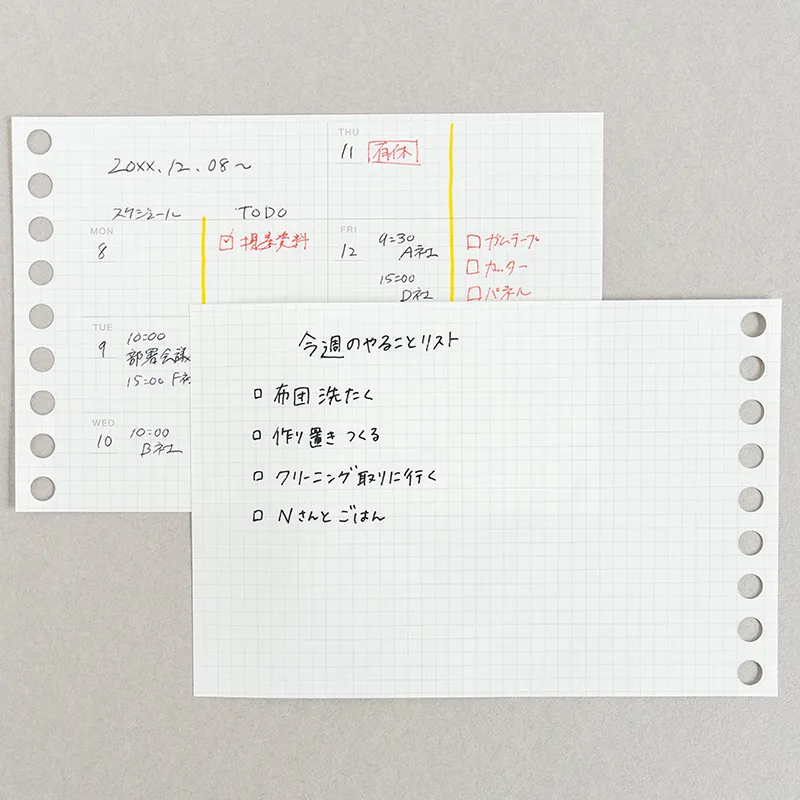 20XX.12.08〜
スケジュール
TODO
MON
8
提案資料
TUE
9
10:00
部署会議
15:00 F社
WED
10
10:00
B社
THU
11
有休
FRI
12
9:30
A社
15:00
D社
ガムテープ
カッター
パネル
今週のやることリスト
布団 洗たく
作り置き つくる
クリーニング取りに行く
Nさんと ごはん